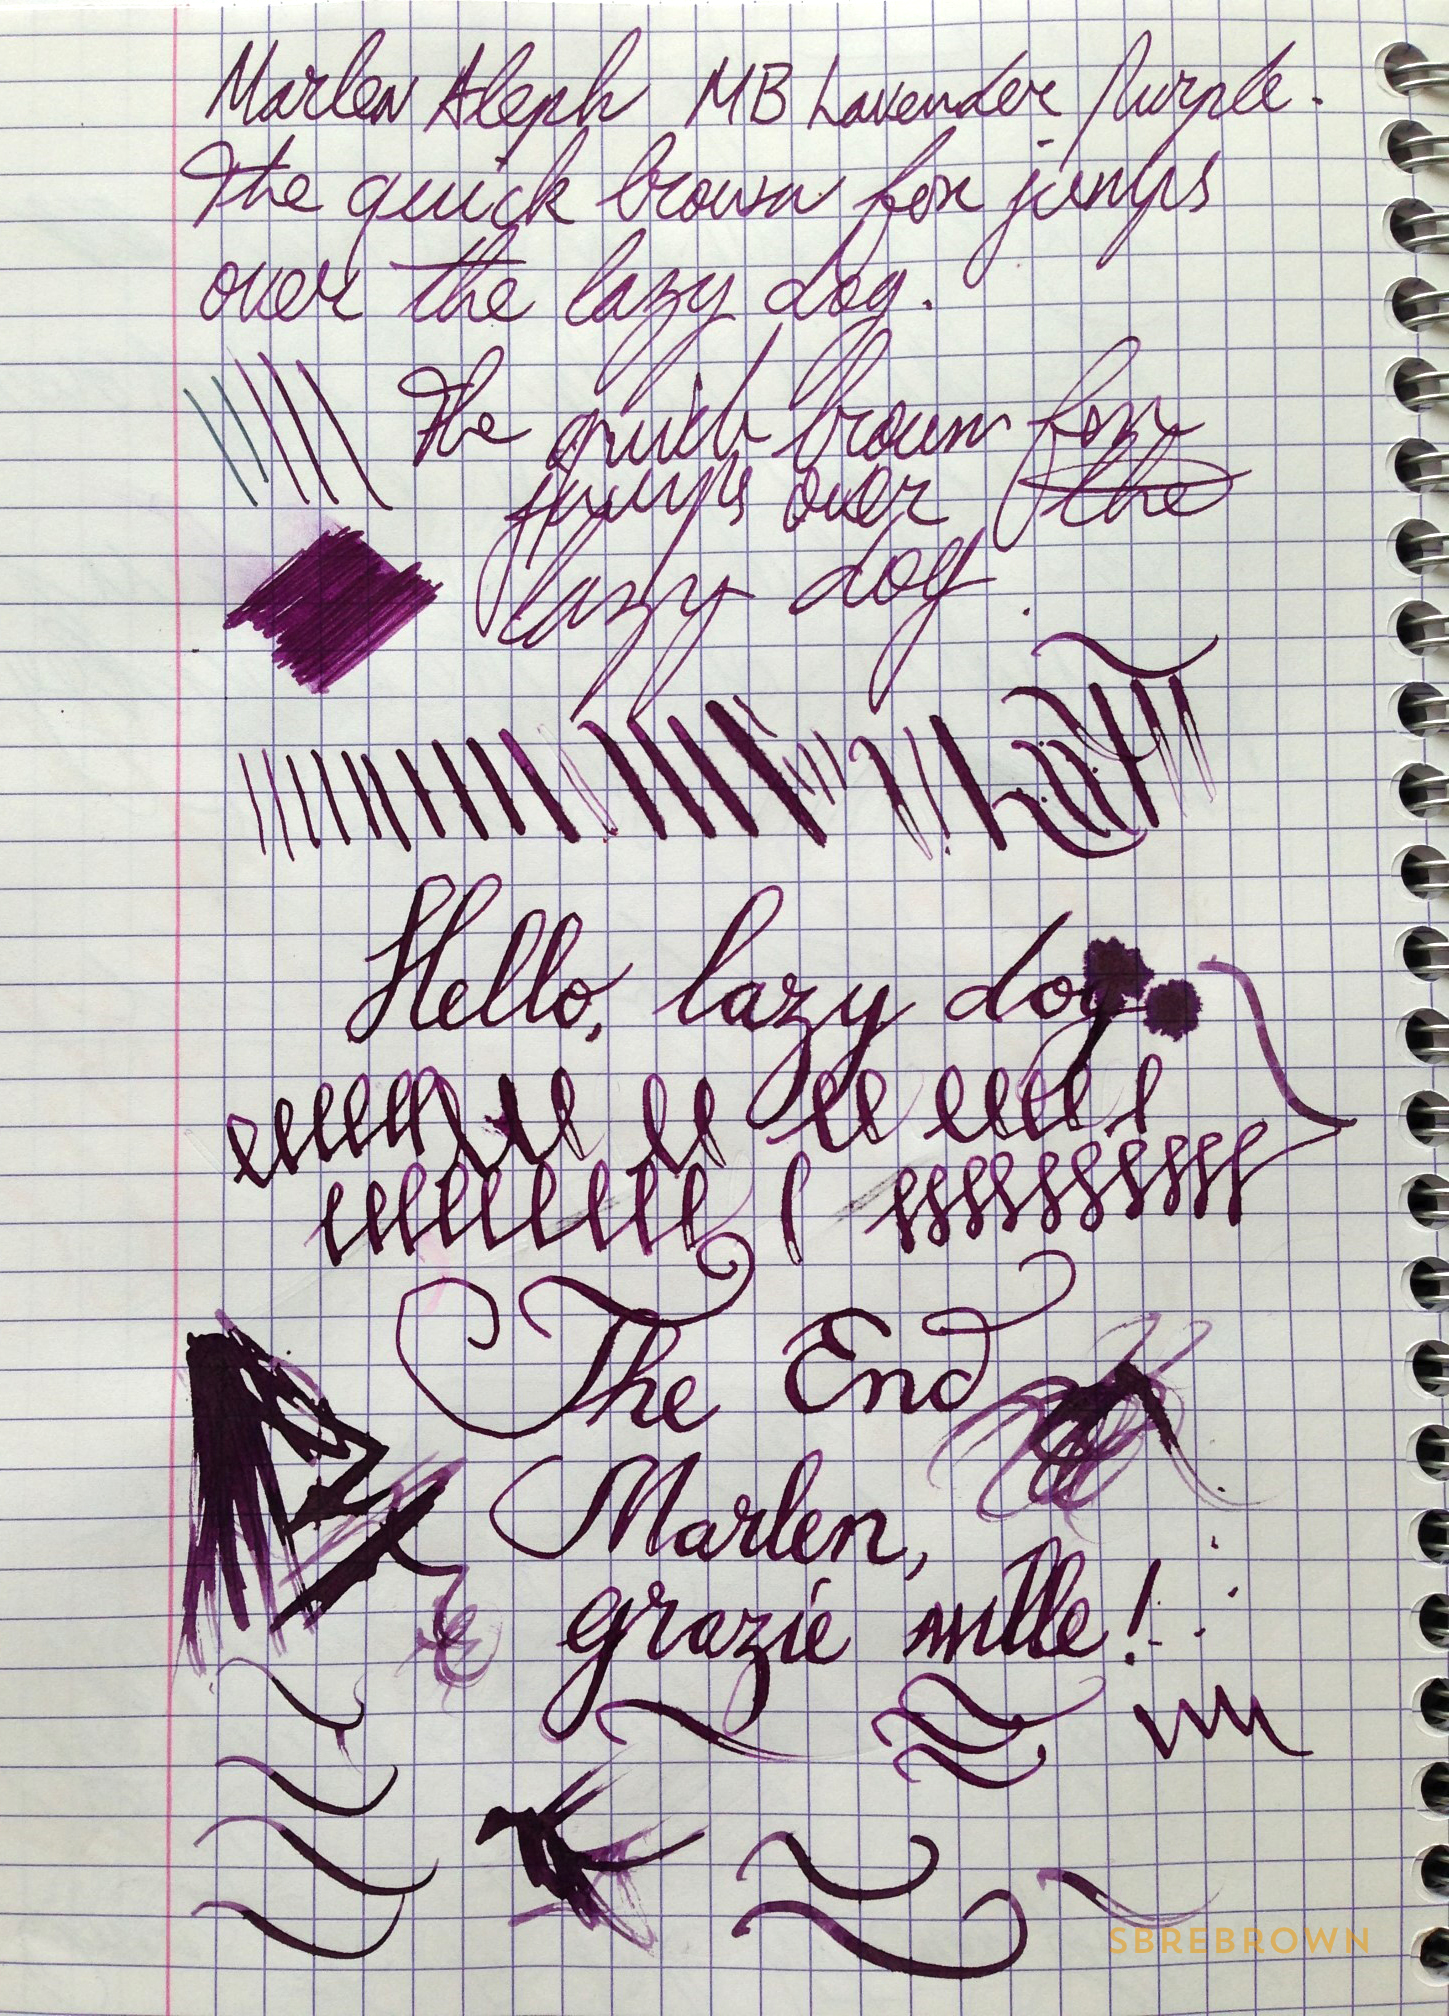 Marlen Aleph MB Lavender Purple.
The quick brown fox jumps
over the lazy dog.
The quick brown fox
jumps over the
lazy dog.
Hello, lazy dog
The End
Marlen,
grazie mille!
SBREBROWN